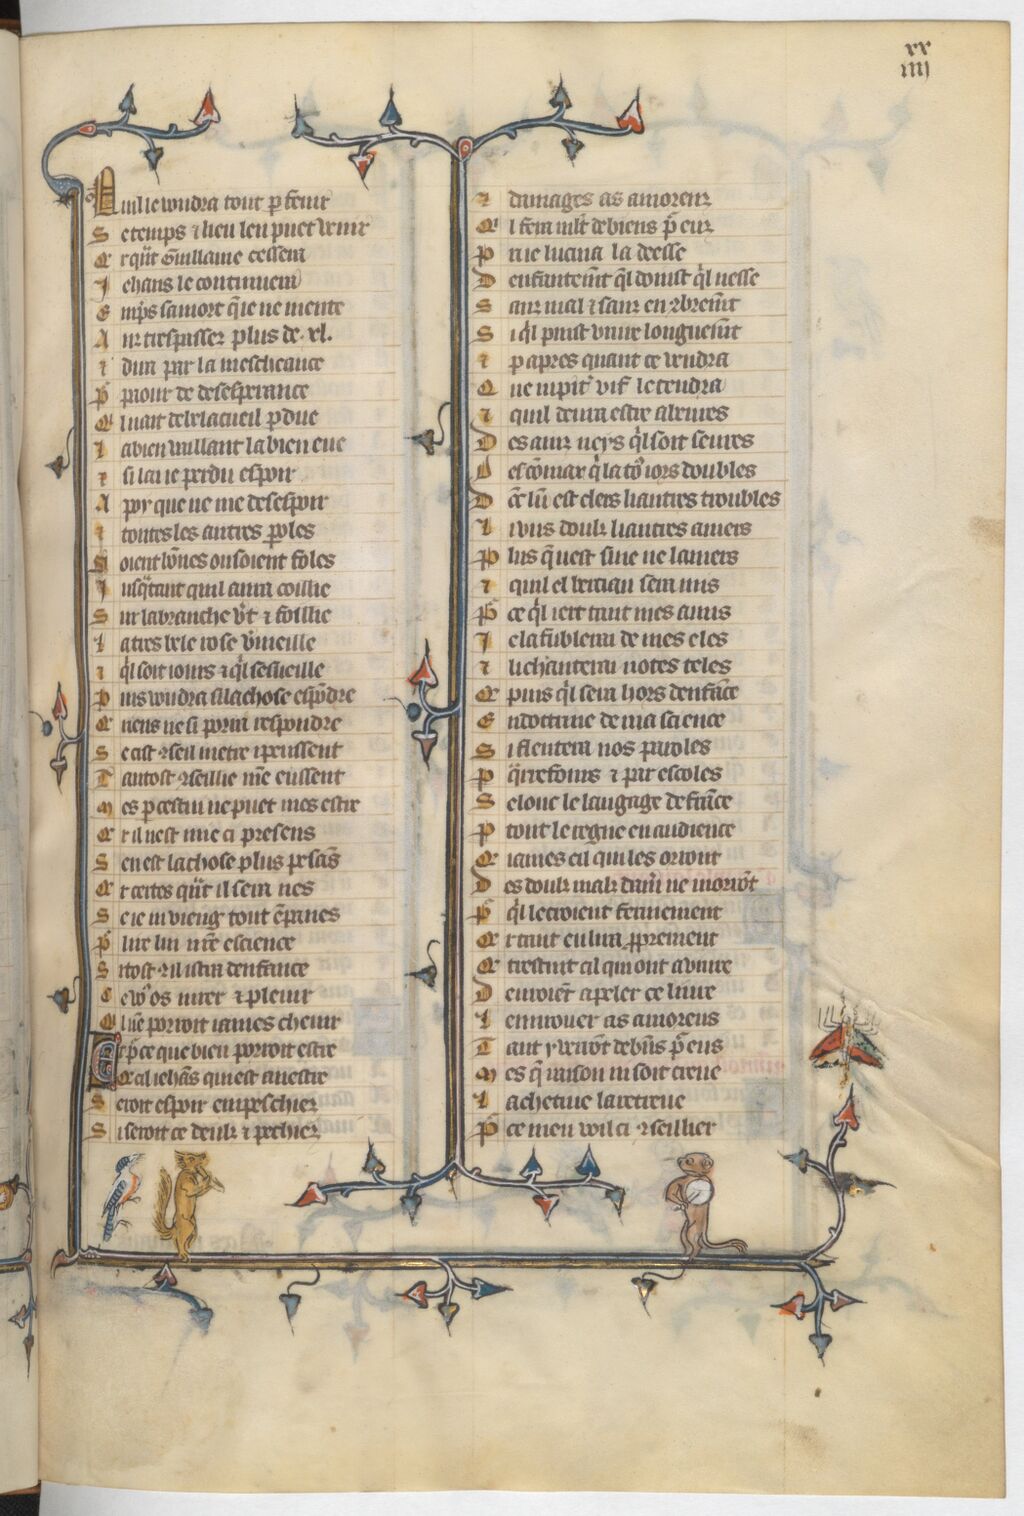 xx
iiii
uil le voudra tout p fenir
S e temps ⁊ lieu len puet venir
C r qũt Guillaume cessera
J ehans le continuera
E mp̃s sa mort q̃ ie ne mente
A nz trespassez plus de .xl.
⁊ dira par la mescheance
P̱ paour de desesperance
Q l nait de bel acueil pdue
L a bien vuillant la bien eue
⁊ si lai ie perdu espoir
A poy que ne me desespoir
⁊ toutes les autres poles
Q̃ oient bõnes ou soient foles
J usq̃ tant quil aura coillie
S ur la branche v̾t ⁊ foillie
L a tres bele rose v̾meille
⁊ q̃l soit iours ⁊ q̃l sesueille
P uis voudra si la chose espõdre
C riens ne si porra respondre
S e cist ꝯseil metre i peussent
T antost ꝯseillie me eussent
M es p cestui ne puet mes estre
C r il nest mie ci presens
S en est la chose plus pesãs
C r certes q̃nt il sera nes
S e ie ni vieng tout ẽpanes
P̱ lire lui nr̃e escience
S i tost ꝯ il istra denfance
C e vos iurer ⁊ pleuir
Q lne porroit iames cheuir
E t pce que bien porroit estre
C cil iehãs qui est a nestre
S eroit espoir empeschiez
S i seroit ce deulz ⁊ pechiez
⁊ damages as amoreuz
Q l fera mlt̃ de biens p̃ euz
P rie lucina la deesse
D enfantem̃t q̃l donist q̃l nesse
S anz mal ⁊ sanz encꝯbrem̃t
S i q̃l puist viure longuem̃t
⁊ p apres quant ce vendra
Q ue iupit̃ vif le tendra
⁊ quil deura estre abeures
D es ainz neys q̃l soit seures
D es tõniax q̃l a toꝰ iors doubles
D õt lũ est clers li autres troubles
L i uns doulz li autres amers
P lus q̃ nest suie ne la mers
⁊ quil el berciau sera mis
P̱ ce q̃l iert tant mes amis
J e lafublerai de mes eles
⁊ li chanterai notes teles
C puis q̃l sera hors denfãce
E ndoctrine de ma science
S i fleutera nos paroles
P q̃rrefours ⁊ par escoles
S elonc le langage de frãce
P tout le regne en audience
C iames cil qui les orront
D es doulz malz damer ne morrõt
P̱ q̃l le croient fermement
C r tant en lira pprement
C trestuit cil qui ont a viure
D euroiẽt apeler ce liure
L e mirouer as amoreus
T ant y verrõt de biẽs p̃ eus
M es q̃ raison ni soit creue
L a chetiue la recreue
P̱ ce men vueil ci ꝯseillier